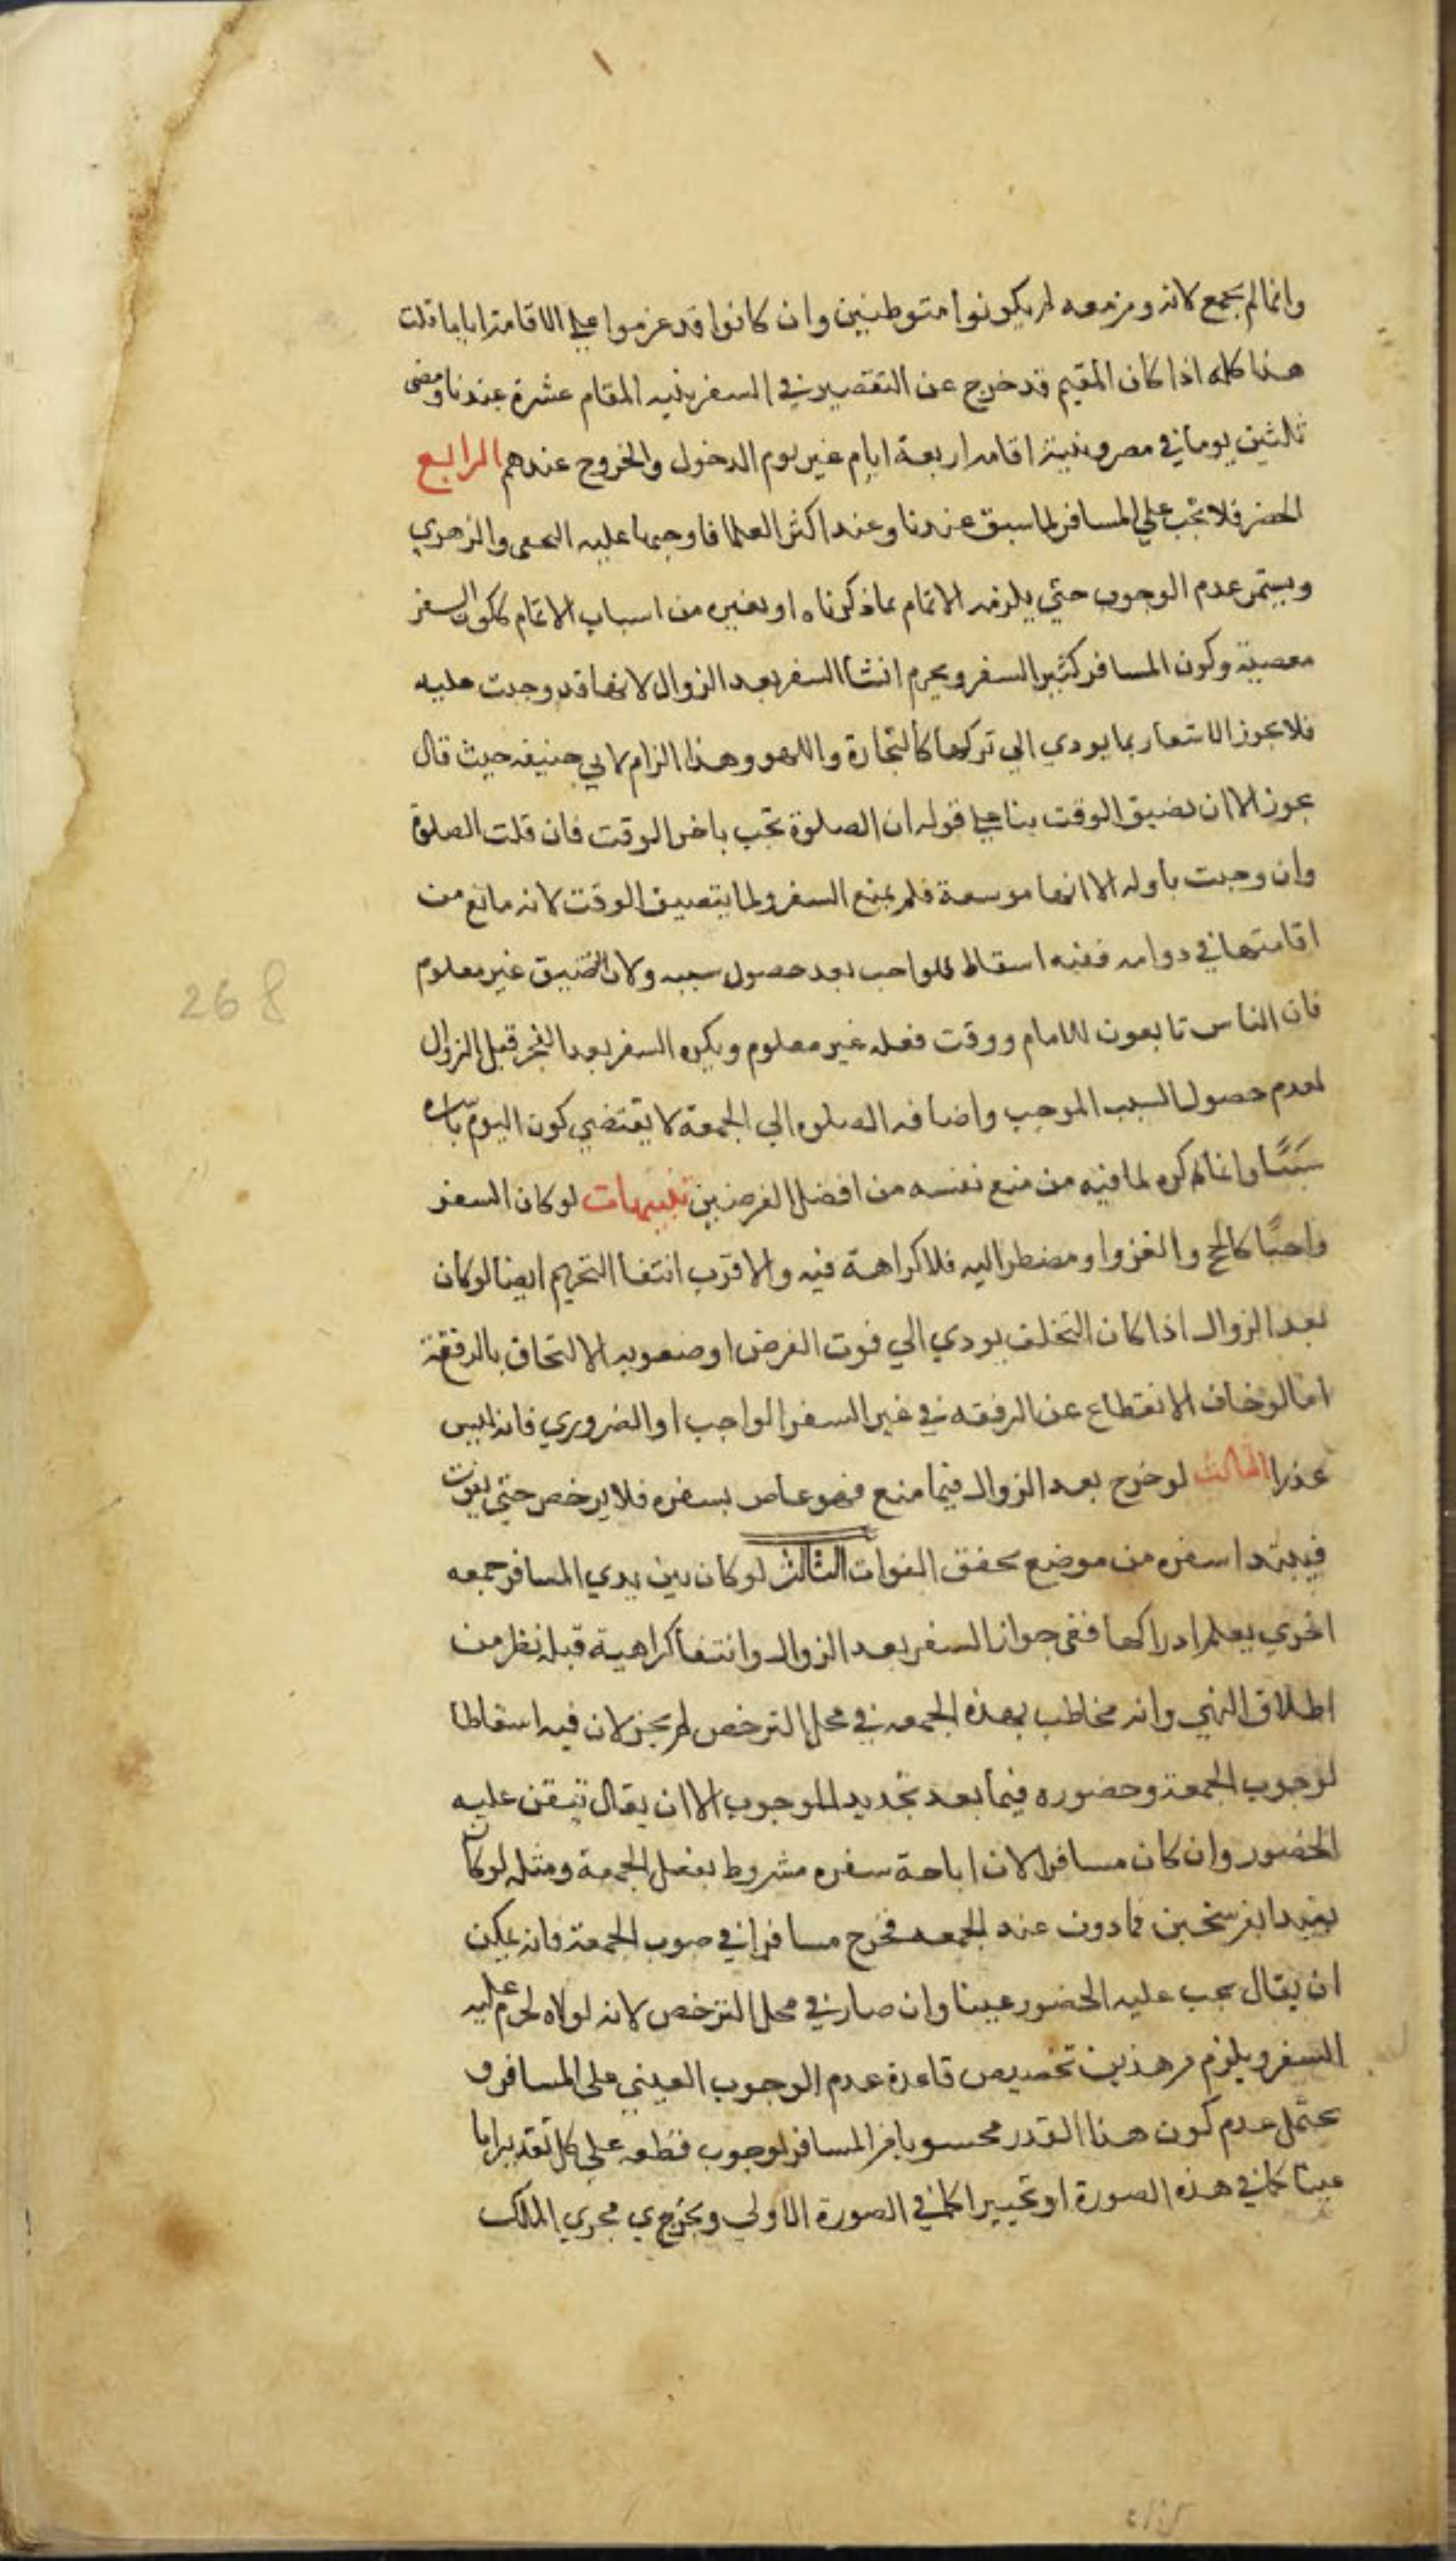 وانما لم يجمع لانه ومن معه لم يكونوا متوطنين وان كانوا قد عزموا على الاقامة اياما قلت
هذا كله اذا كان المقيم قد خرج عن التقصير في السفر بنيه المقام عشرة عندنا ومضى
ثلثين يوما في مصر وبنية اقامه اربعة ايام غير يوم الدخول والخروج عندهم الرابع
الحضر فلا تجب على المسافر لما سبق عندنا وعند اكثر العلما فاوجبها عليه النخعي والزهري
ويستمر عدم الوجوب حتى يلزمه الاتمام بما ذكرناه او بغيره من اسباب الاتمام ككون السفر
معصية وكون المسافر كثير السفر ويحرم انشا السفر بعد الزوال لانها قد وجبت عليه
فلا يجوز الاشتغال بما يودي الى تركها كالتجارة واللهو وهذا الزام لابي حنيفه حيث قال
يجوز الا ان يضيق الوقت بنا على قوله ان الصلوة تجب باخر الوقت فان قلت الصلوة
وان وجبت باوله الا انها موسعة فلم يمنع السفر ولما يتضيق الوقت لانه مانع من
اقامتها في دوامه ففيه اسقاط للواجب بعد حصول سببه ولان التضيق غير معلوم
فان الناس تابعون للامام ووقت فعله غير معلوم ويكره السفر بعد الفجر قبل الزوال
لعدم حصول السبب الموجب واضافه الصلوه الى الجمعة لا يقتضي كون اليوم باسره
سببًا وانما كره لما فيه من منع نفسه من افضل الفرضين تنبيهات لو كان السفر
واجبًا كالحج والغزو او مضطرا اليه فلا كراهة فيه والاقرب انتفا التحريم ايضا لو كان
بعد الزوال اذا كان التخلف يودي الى فوت الغرض او صعوبه الالتحاق بالرفقة
اما لو خاف الانقطاع عن الرفقه في غير السفر الواجب او الضروري فانه ليس
عذرا الثالث لو خرج بعد الزوال فيما منع فهو عاص بسفره فلا يرخص حتى يفوت
فيبتدا سفره من موضع تحقق الفوات الثالث لو كان بين يدي المسافر جمعه
اخرى يعلم ادراكها ففي جواز السفر بعد الزوال وانتفا كراهية قبله نظر من
اطلاق النهي وانه مخاطب بهذه الجمعه في محل الترخص لم يجز لان فيه اسقاطا
لوجوب الجمعة وحضوره فيما بعد تجديد للوجوب الا ان يقال يتيقن عليه
الحضور وان كان مسافرا لان اباحة سفره مشروط بفعل الجمعة ومثله لو كان
بعيدا بفرسخين فما دون عند الجمعه فخرج مسافرا في صوب الجمعة فانه يمكن
ان يقال يجب عليه الحضور عينا وان صار في محل الترخص لانه لولاه لحرم عليه
السفر ويلزم من هذين تخصيص قاعدة عدم الوجوب العيني على المسافر و
يحتمل عدم كون هذا القدر محسوبا من المسافر لوجوب قطعه على كل تقدير اما
عينا كما في هذه الصورة او تخييرا كما في الصورة الاولى ويخرج ي مجرى الملك
268